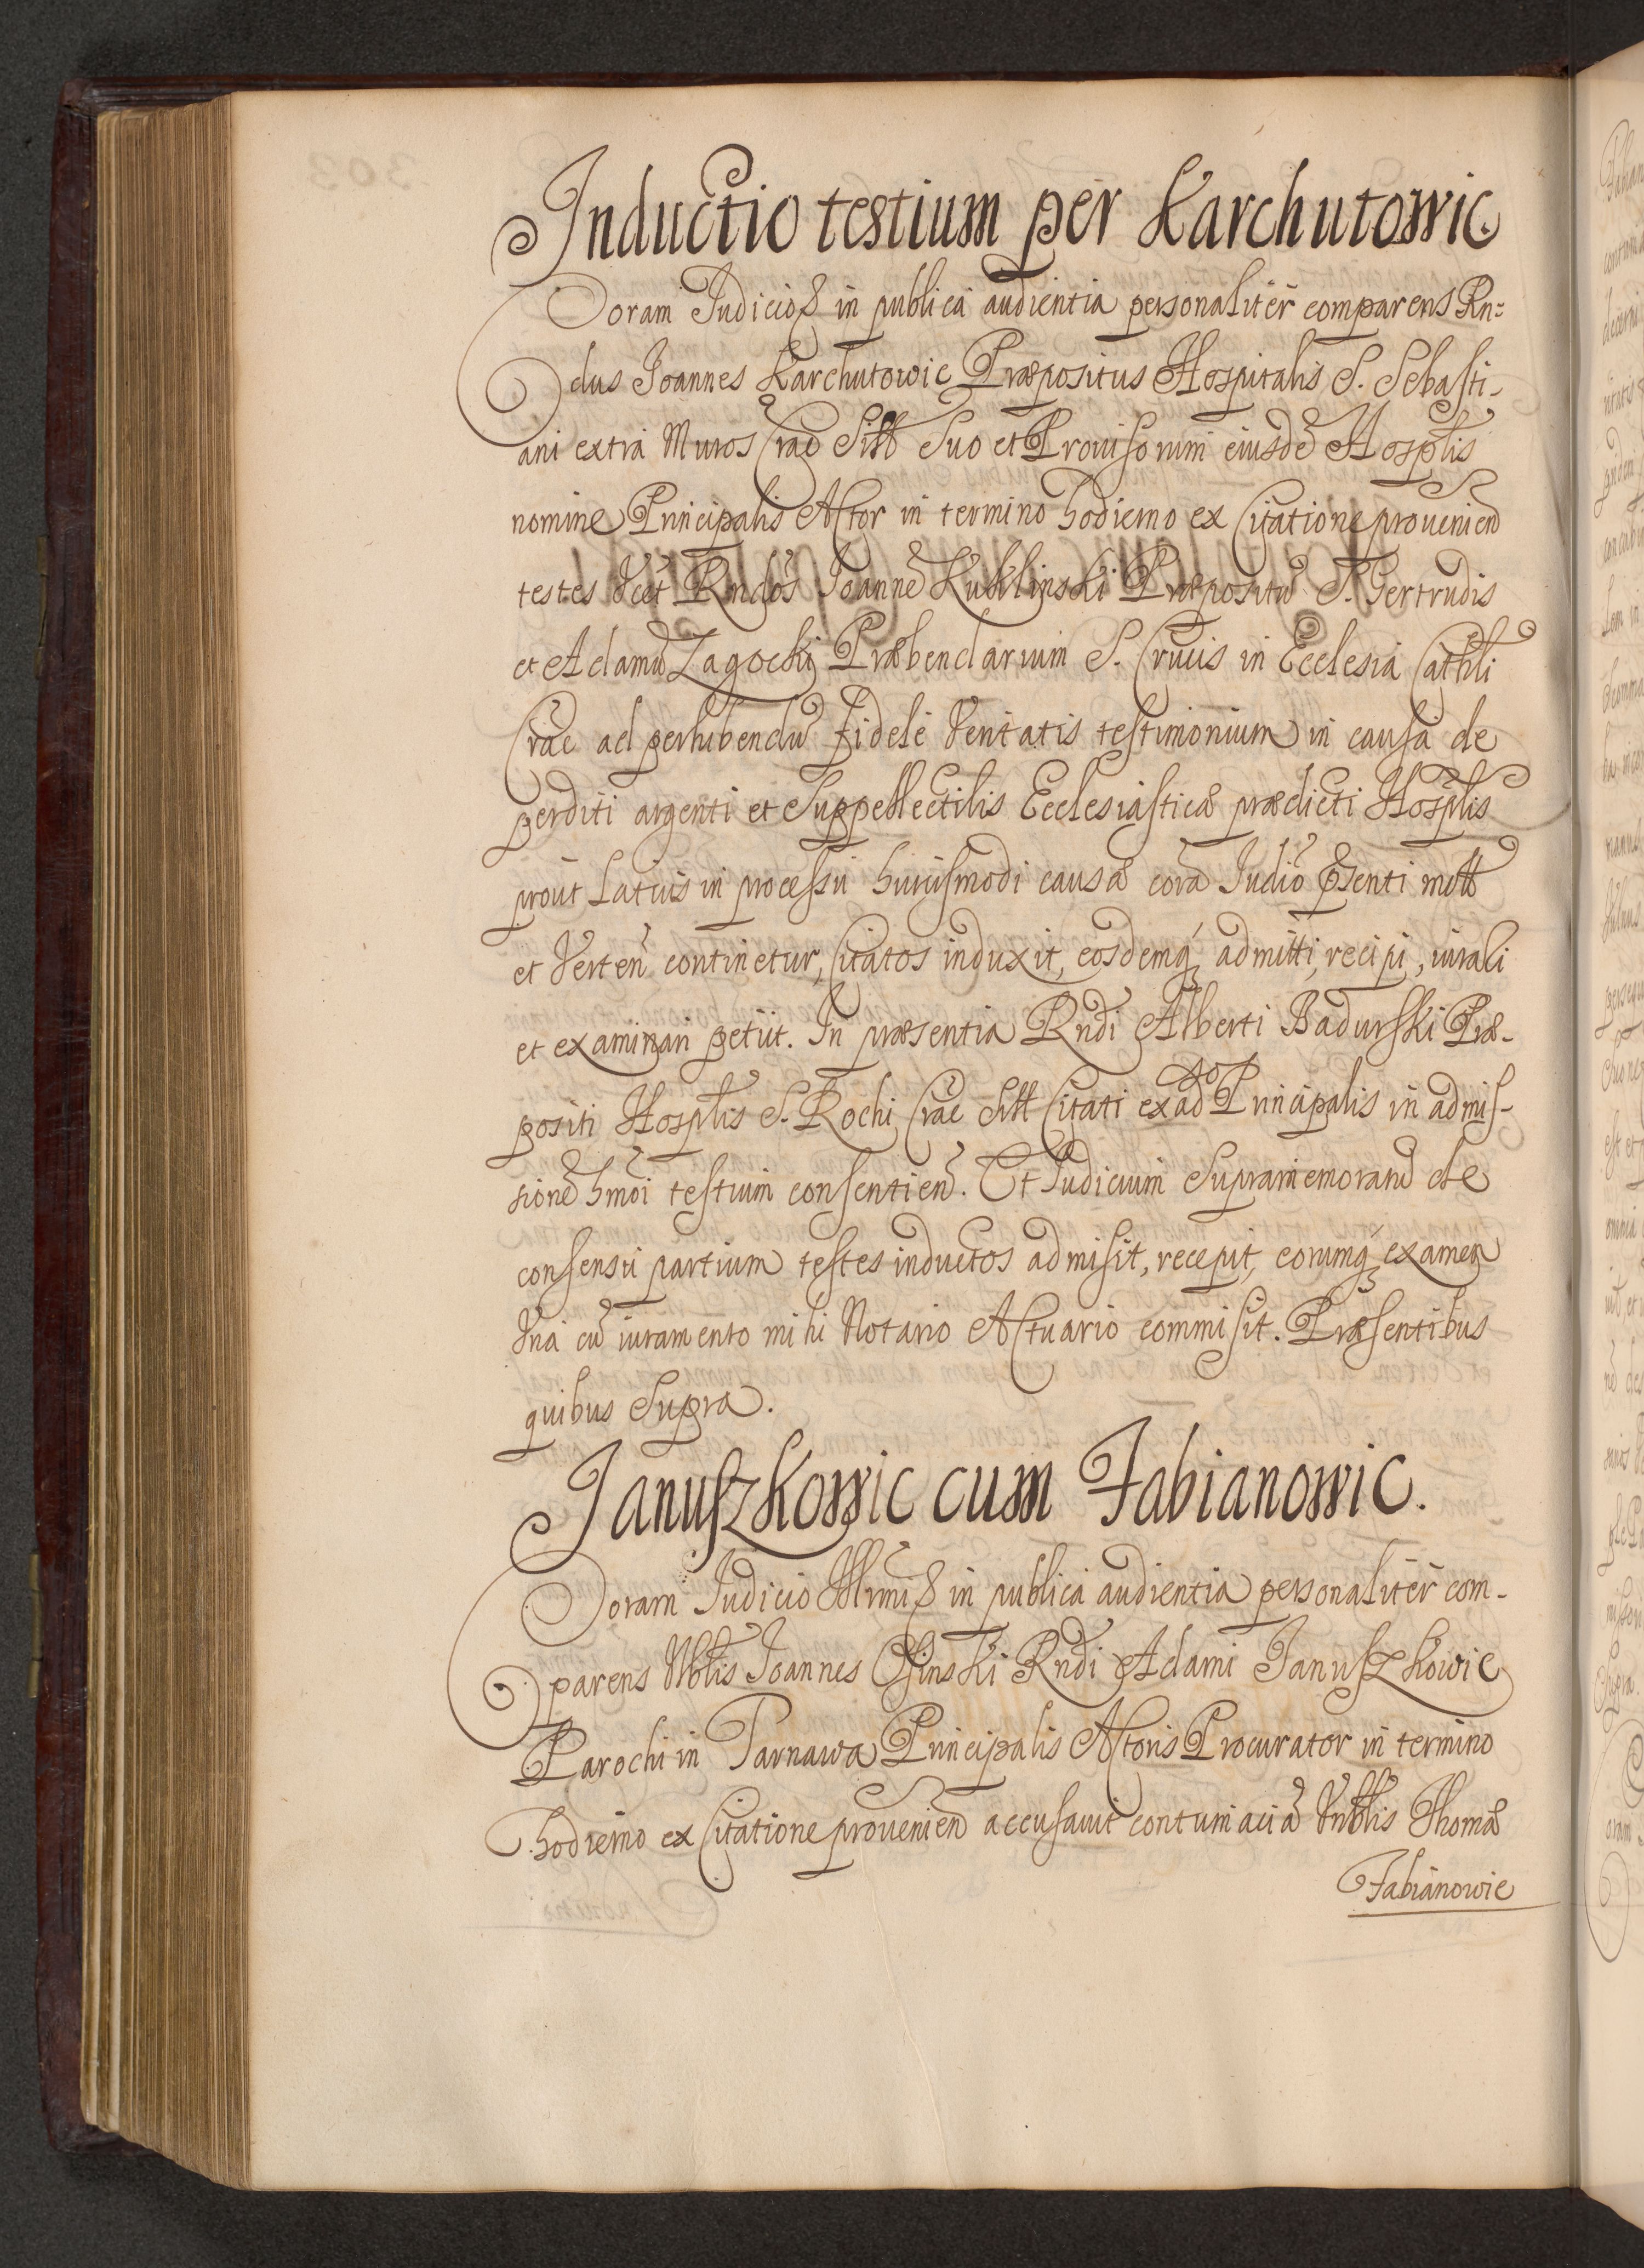 Inductio testium per Karchutowic.
Coram Judicio & in publica audientia personaliter comparens Rn=
dus Joannes Karchutowic Præpositus Hospitalis S. Sebasti-
ani extra Muros Crac Sitt Suo et Prouisorum eiusdẽ Hosplis
nomine Principalis Actor in termino hodierno ex Citatione prouenien
testes Vcet Rndos Joannẽ Kuklinski Præpositũ S. Gertrudis
et Adamũ Zagocki Præbendarium S. Crucis in Ecclesia Cathli
Crac ad perhibendũ fidele Veritatis testimonium in causa de
perditi argenti et Suppellectilis Ecclesiasticæ prædicti Hosplis
prout Latius in processu huiusmodi causæ corã Judio Psenti mott
et Verteñ continetur, Citatos induxit, eosdemq admitti, recipi, iurari
et examinari petiit. In præsentia Rndi Alberti Badurski Præ-
positi Hosplis S. Rochi Crac Sitt Citati ex ado Principalis in admis-
sionẽ hmoi testium consentieñ. Et Judicium Supramemorand de
consensu partium testes inductos admisit, recepit, eorumq examen
Una cũ iuramento mihi Notario Actuario commisit. Præsentibus
quibus Supra.
Januszkowic cum Fabianowic.
Coram Judicio Illrmi & in publica audientia personaliter com-
parens Nblis Joannes Osinski Rndi Adami Januszkowic
Parochi in Tarnawa Principalis Actoris Procurator in termino
hodierno ex Citatione prouenieñ accusauit contumaciã Nblis Thomæ
Fabianowic